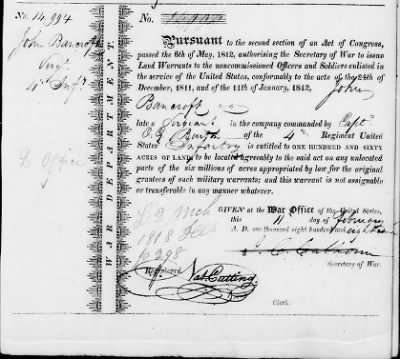 No. 14,994
John Bancroft
Serg.t
4th Inf.y
L Office
WAR DEPARTMENT.
No. 14,994
Pursuant to the second section of an Act of Congress,
passed the 6th of May, 1812, authorising the Secretary of War to issue
Land Warrants to the noncommissioned Officers and Soldiers enlisted in
the service of the United States, conformably to the acts of the 24th of
December, 1811, and of the 11th of January, 1812, John
Bancroft
late a Sergeant in the company commanded by Capt
of the 4th Regiment United
States Infantry is ENTITLED to ONE HUNDRED AND SIXTY
ACRES OF LAND to be located agreeably to the said act on any unlocated
part of the six millions of acres appropriated by law for the original
grantees of such military warrants; and this warrant is not assignable
or transferable in any manner whatever.
GIVEN at the War Office of the United States,
this 11 day of February
A. D. one thousand eight hundred and eighteen
J. C. Calhoun
Secretary of War.
1818
Registered
Nat. Cutting
Clerk.